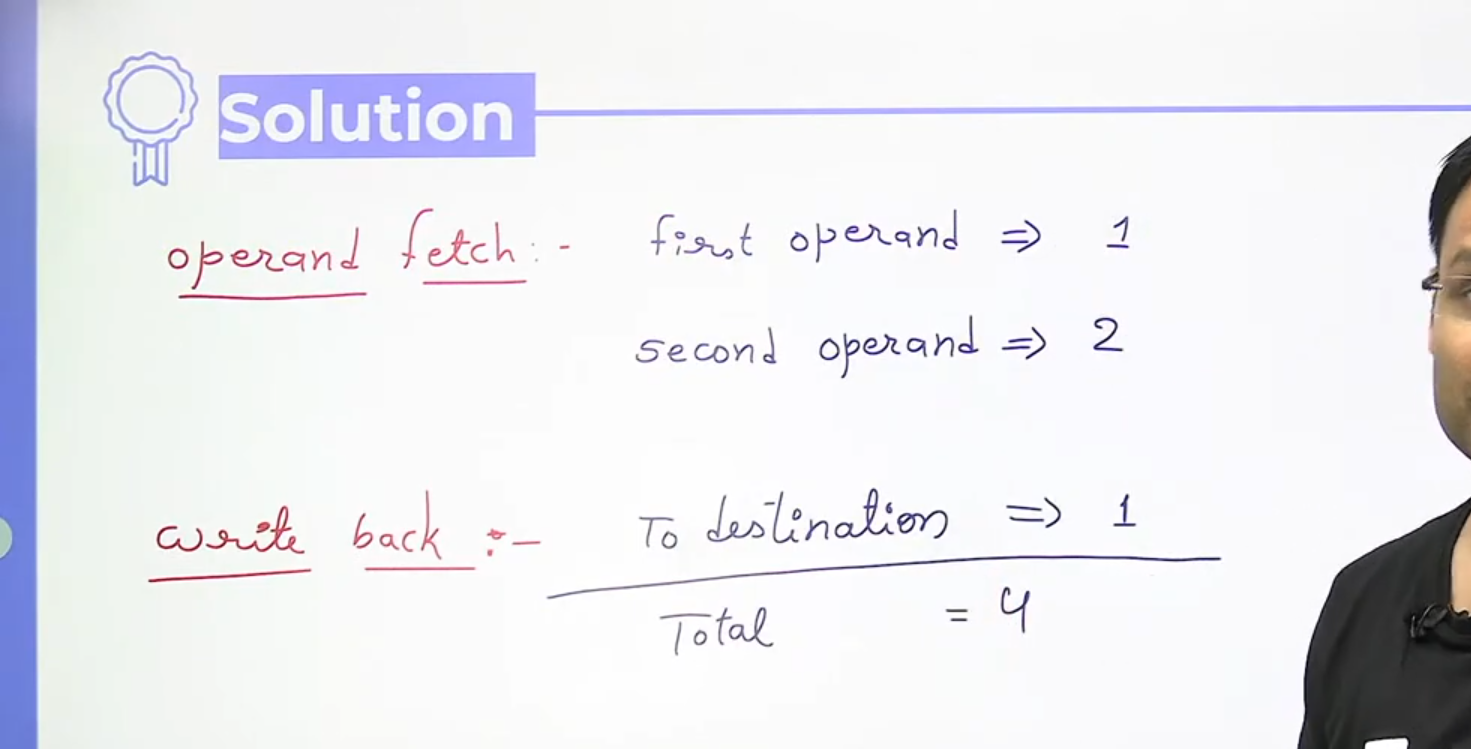 Solution
operand fetch :- first operand ⇒ 1
second operand ⇒ 2
write back :- To destination ⇒ 1
Total = 4